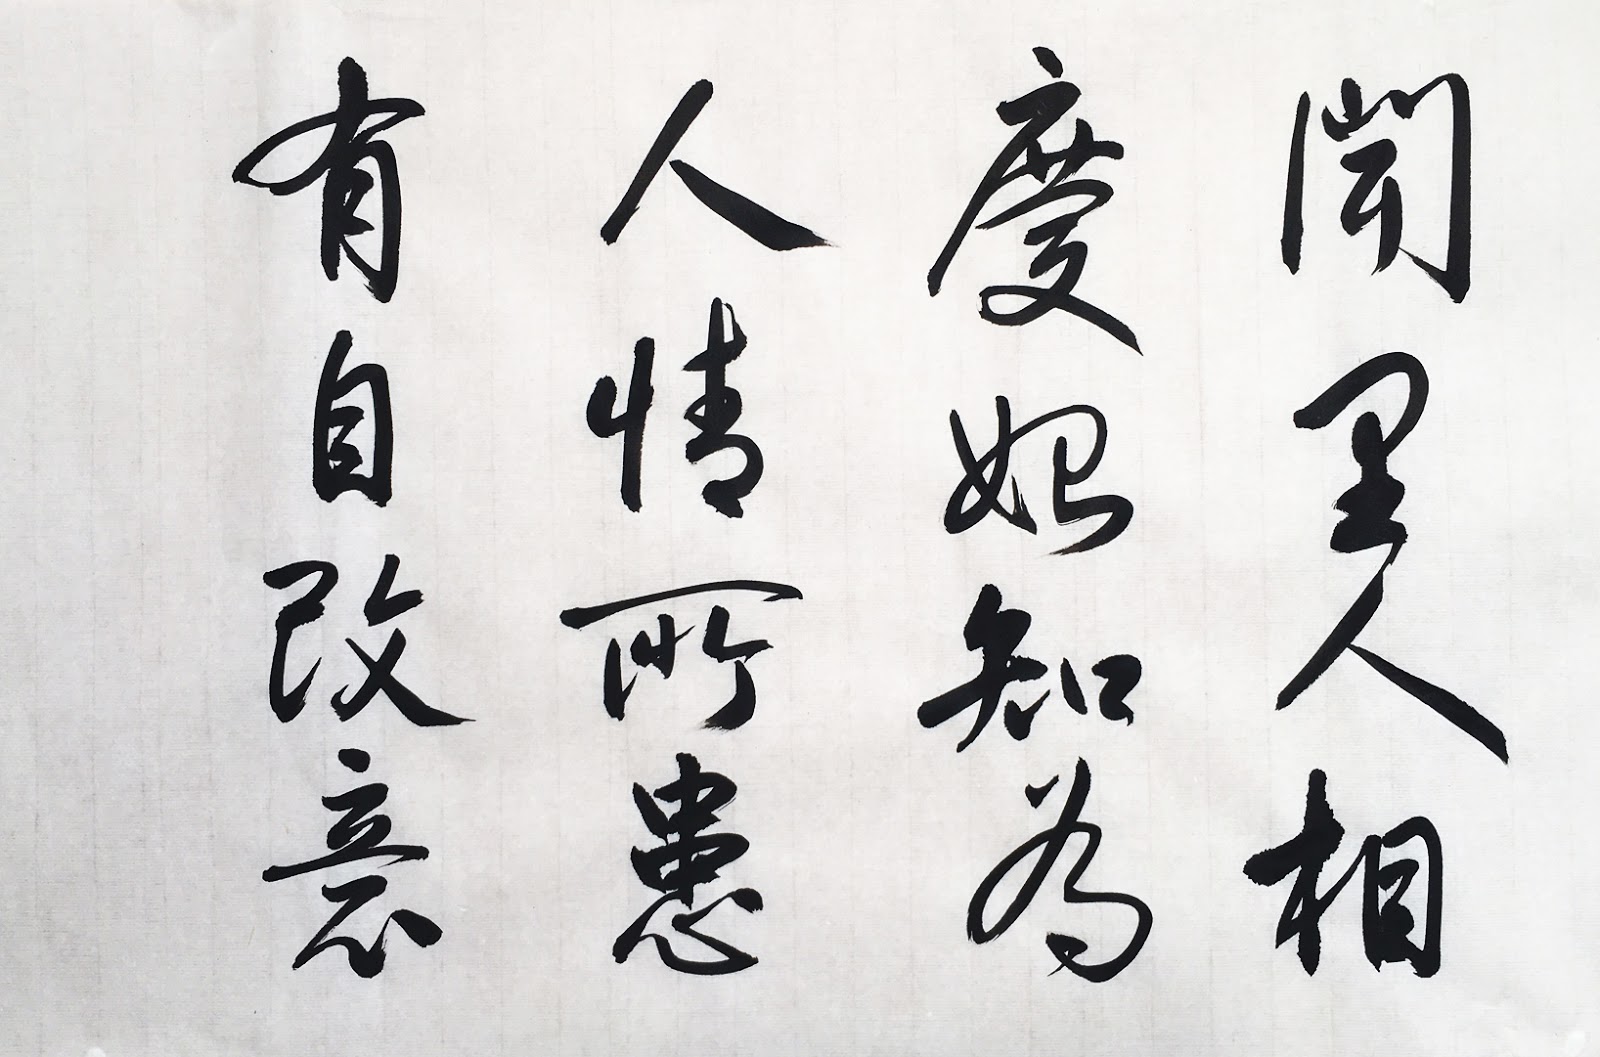 聞里人相
慶始知為
人情所患
有自改意